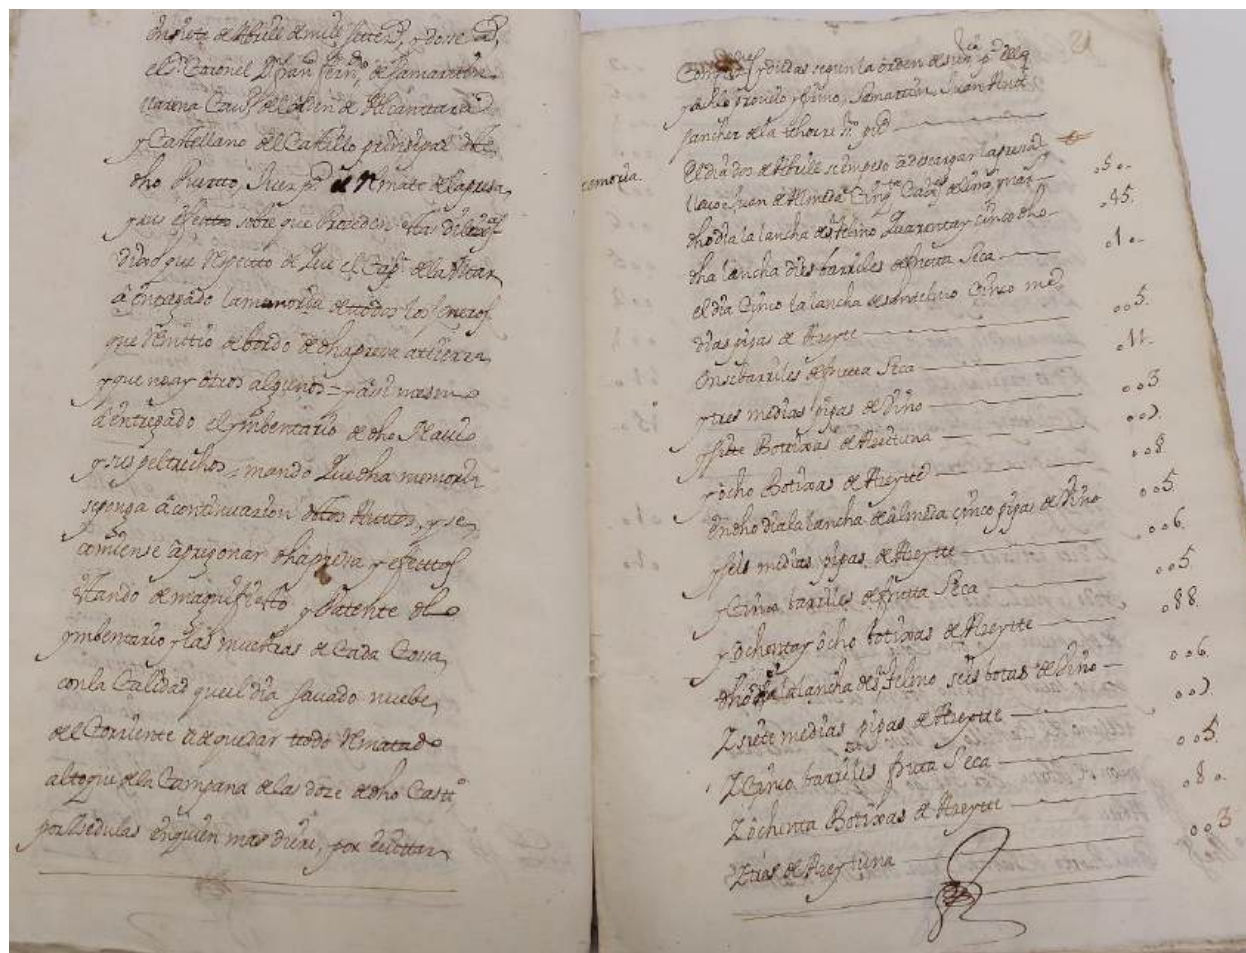 en siete de Abrill de mill settes.s y dose a.s
el S.r Coronel D.n fran.co fern.do de Samartin
llarena Cau.o del orden de Alcanttara
y Castellano del Castillo prinsipal deste
dho Puerto, Juez p.a el Rmate de la presa,
y sus efectos sobre que Proseden estas dilix.as
Dixo que Respecto de Que el Cap.n de la Mar
â entregado la memoria de todos los Jeneros
que Remitio de bordo de dha presa a tierra,
y que no ay ôtros algunos = y asimismo
â entregado el ymbentario de dho Nauio
y sus peltrechos, mando Que dha memoria
se ponga â continuazion destos Auttos, y se
comiense a pregonar dha presa y efecttos
stando de magnifiesto y Patente el
ymbentario y las muestras de Cada Cossa,
con la Calidad que el dia sauado nuebe,
del Corriente a de quedar todo Rmatado
al toque de la Campana de las doze de dho Casti.o
por Zedulas en quien mas diere, por euittar
21
Comp.as y dillas segun la orden de su ex.a p.a ello
y asi lo proueio y firmo, Samartin, Juan Anto
sanches de la thorre s.no pu.co
memoria.
El dia dos de Abrile se empeso a descargar la presa
lleuo Juan de Almeda Cinq.ta Cada.s de lino, y mas 5o..
dho dia la lancha de S.n Telmo Quarenta y cinco dho 45.
dha lancha dies barriles de frutta Seca 1o..
el dia Cinco la lancha de san telmo Cinco me
dias pipas de Azeyte oo5.
Onse barriles de frutta Seca o11.
y tres medias pipas de Vino oo3
y siette Botixas de Azeituna oo7.
y ôcho Botixas de Azeytte oo8.
en dho dia la lancha de almeda çinco pipas de Vino oo5.
y seis medias pipas de Azeytte oo6.
y Cinco barriles de frutta Seca oo5
y ôchenta y ôcho botixas de Azeytte o88.
dho dia la lancha de S.n Telmo seis botas de Vino oo6.
Z siete medias pipas de Azeytte oo7.
Z Cinco barriles de fruta Seca oo5.
Z ôchenta Botixas de Azeytte o8o.
Z tres de Azeytuna oo3